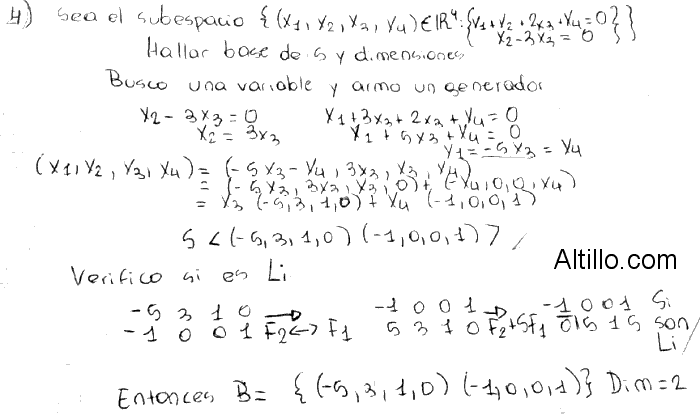 4) Sea el subespacio {(x1, x2, x3, x4) ∈ IR⁴: {x1 + x2 + 2x3 + x4 = 0
x2 - 3x3 = 0 }}
Hallar base de S y dimensiones
Busco una variable y armo un generador
x2 - 3x3 = 0 x1 + 3x3 + 2x3 + x4 = 0
x2 = 3x3 x1 + 5x3 + x4 = 0
x1 = -5x3 = x4
(x1, x2, x3, x4) = (-5x3 - x4, 3x3, x3, x4)
= (-5x3, 3x3, x3, 0) + (-x4, 0, 0, x4)
= x3 (-5, 3, 1, 0) + x4 (-1, 0, 0, 1)
S < (-5, 3, 1, 0) (-1, 0, 0, 1) >
Altillo.com
Verifico si es Li
-5 3 1 0 → -1 0 0 1 → -1 0 0 1 Si
-1 0 0 1 F2 ↔ F1 5 3 1 0 F2+5F1 0 5 1 5 son
Li
Entonces B = {(-5, 3, 1, 0) (-1, 0, 0, 1)} Dim = 2